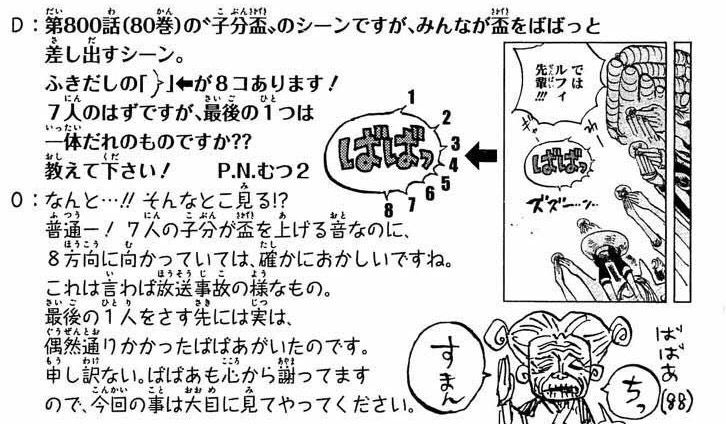 D：第800話(80巻)の〝子分盃〟のシーンですが、みんなが盃をばばっと
差し出すシーン。
ふきだしの「｝」←が８コあります！
７人のはずですが、最後の１つは
一体だれのものですか??
教えて下さい！ P.N.むつ２
O：なんと…!! そんなとこ見る!?
普通ー！ ７人の子分が盃を上げる音なのに、
８方向に向かっていては、確かにおかしいですね。
これは言わば放送事故の様なもの。
最後の１人をさす先には実は、
偶然通りかかったばばあがいたのです。
申し訳ない。ばばあも心から謝ってます
ので、今回の事は大目に見てやってください。
ばばっ
1
2
3
4
5
6
7
8
では
ルフィ
先輩!!!
ばばっ
ズズーン…
すまん
ちっ
ばばあ
(88)